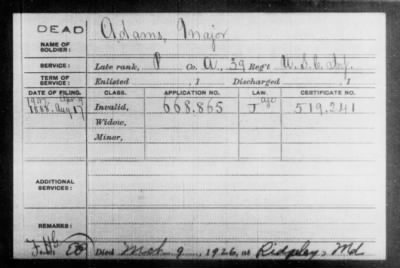 DEAD
NAME OF SOLDIER: Adams, Major
SERVICE: Late rank, P Co. A, 39 Reg't U.S.C. Inf.
TERM OF SERVICE: Enlisted , 1 Discharged , 1
DATE OF FILING. CLASS. APPLICATION NO. LAW. CERTIFICATE NO.
1907 Apr 9
1888. Aug 17 Invalid, 668.865 J age 519.241
Widow,
Minor,
ADDITIONAL SERVICES:
REMARKS:
Died Mch 9, 1926, at Ridgeley, Md